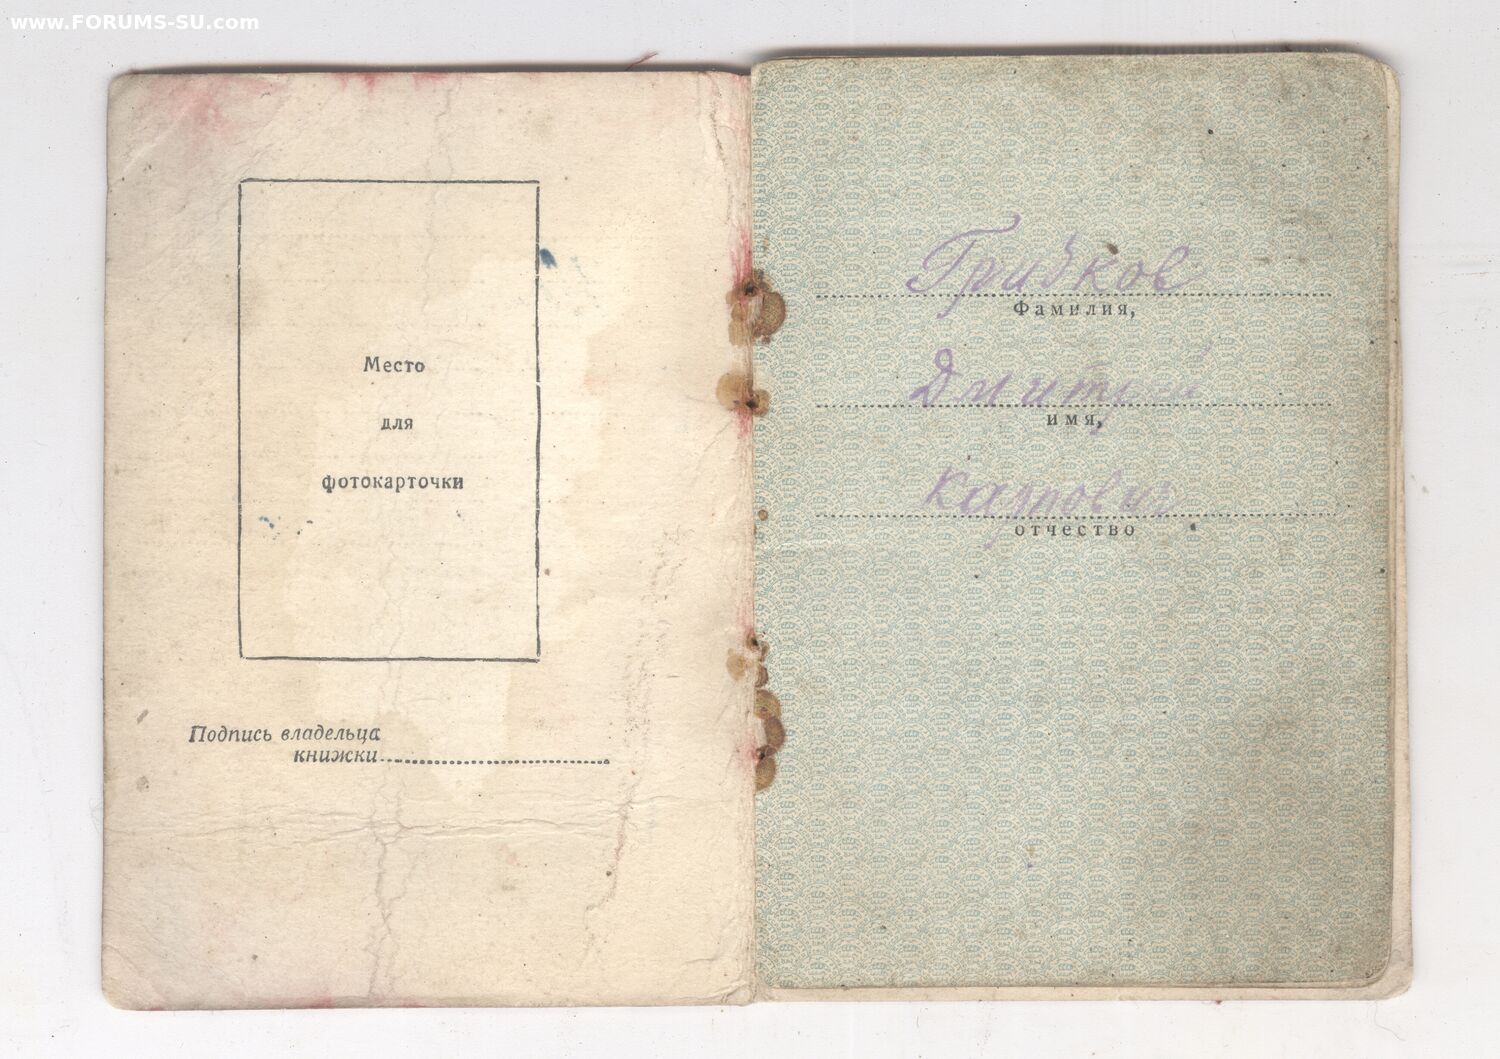 www.FORUMS-SU.com
Место
для
фотокарточки
Подпись владельца
книжки
Грибков
Фамилия,
Дмитрий
имя,
Карпович
отчество